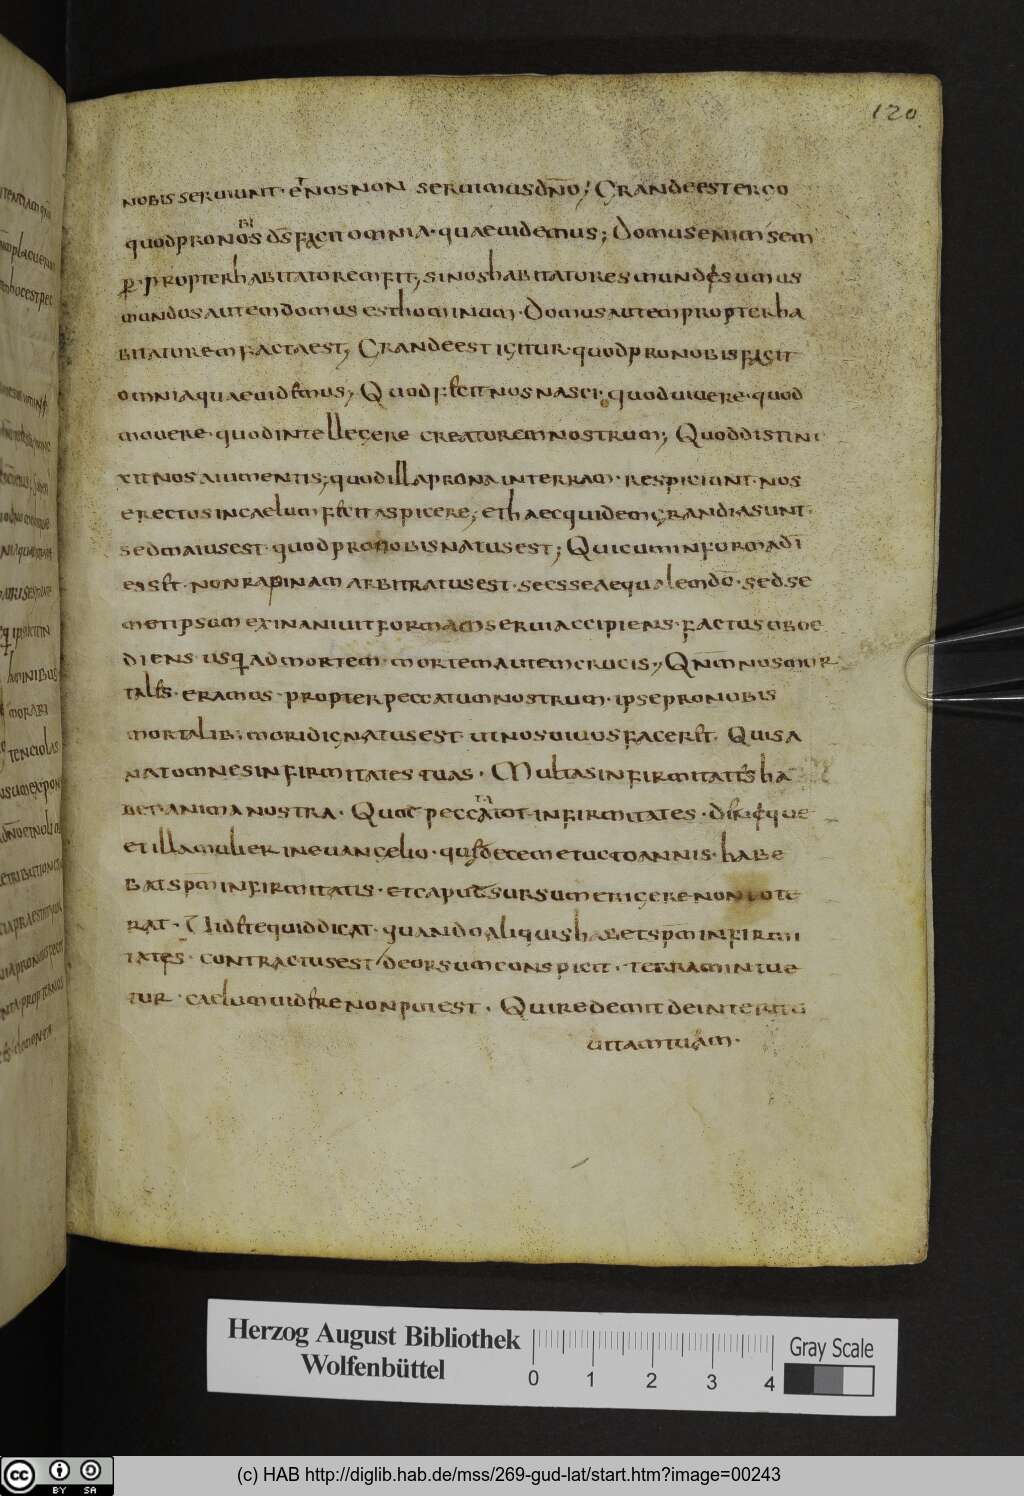 120
nobis seruiunt· et nos non seruimus dn̄o; Grande est ergo
quod pro nobis ds̄ facit omnia· quae uidemus; Domus enim sem
per· propter habitatorem fit; si nos habitatores mundi sumus
mundus autem domus est hominum· Domus autem propter ha
bitatorem facta est; Grande est igitur· quod pro nobis facit
omnia quae uidemus; Quod fecit nos nasci; quod uiuere· quod
mouere· quod intellegere creatorem nostrum; Quod distin
xit nos a iumentis; quod illa prona in terram· respiciunt· nos
erectos in caelum fecit aspicere; et haec quidem grandia sunt·
sed maius est· quod pro nobis natus est; Qui cum in forma dī
esset· non rapinam arbitratus est· se esse aequalem dō· sed se
met ipsum exinaniuit formam serui accipiens· factus oboe
diens usq· ad mortem· mortem autem crucis; Qn̄m nos mor
tales· eramus· propter peccatum nostrum· ipse pro nobis
mortalib; mori dignatus est· ut nos uiuos faceret· Qui sa
nat omnes infirmitates tuas· Multas infirmitates ha
bet anima nostra· Quot peccata tot infirmitates· Deniq; que
et illa mulier in euangelio· quae decem et octo annis· habe
bat spm̄ infirmitatis· et caput sursum erigere non pote
rat· Videte quid dicat· quando aliquis habet spm̄ infirmi
tates· contractus est· deorsum conspicit· terram intue
tur· caelum uidere non potest· Qui redemit de interitu
uitam tuam·
Herzog August Bibliothek
Wolfenbüttel
0 1 2 3 4
Gray Scale
cc BY SA
(c) HAB http://diglib.hab.de/mss/269-gud-lat/start.htm?image=00243